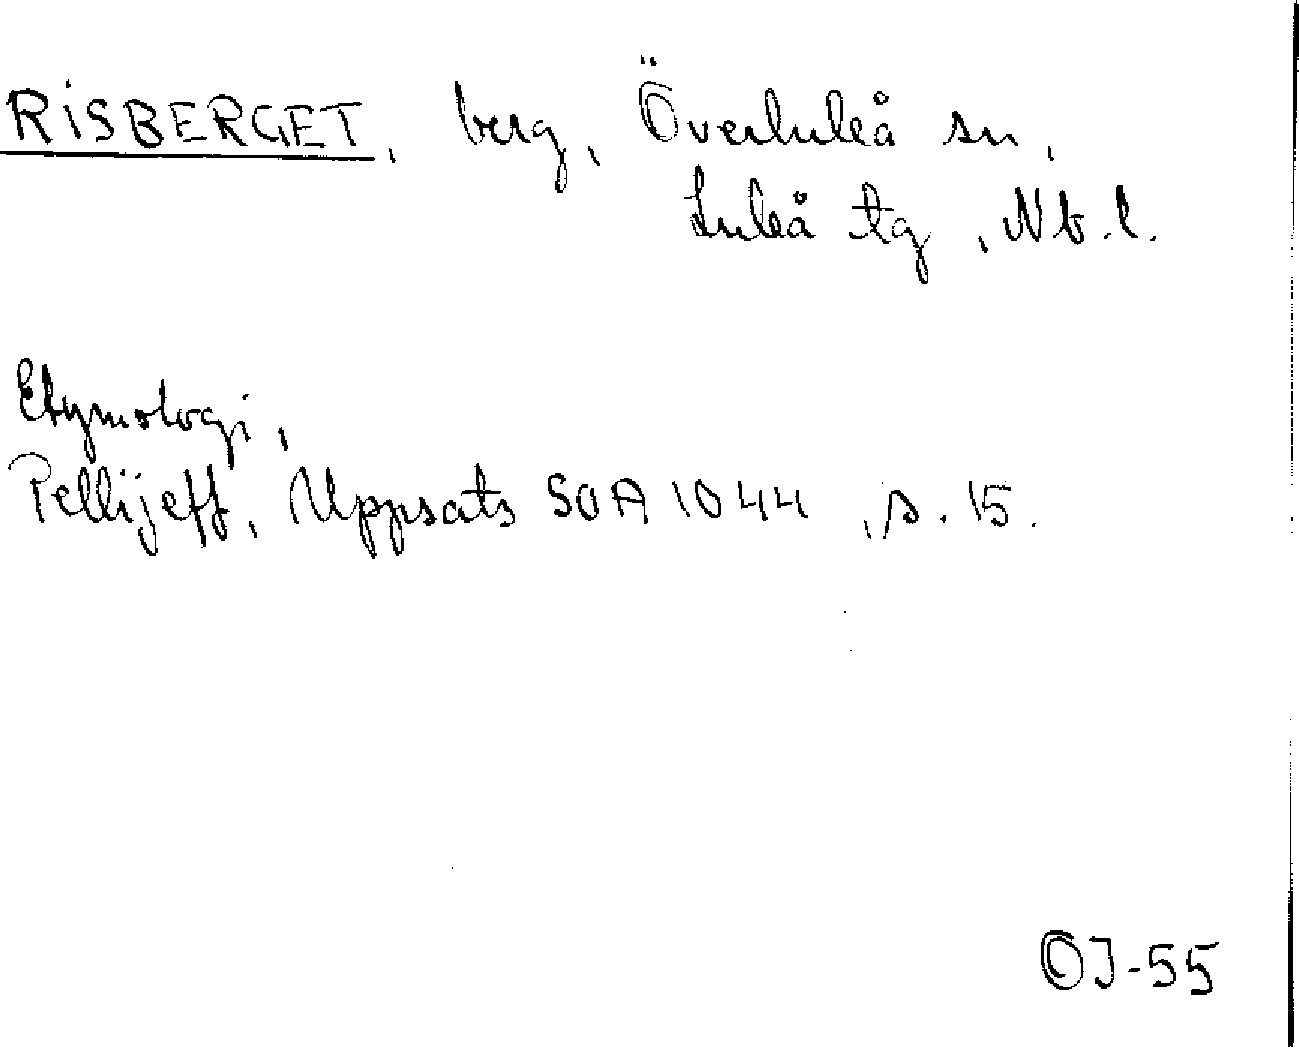 RISBERGET, berg, Överluleå sn,
Luleå tg, Nb.l.
Etymologi,
Pellijeff, Uppsats SOA 1044, s. 15.
OJ-55